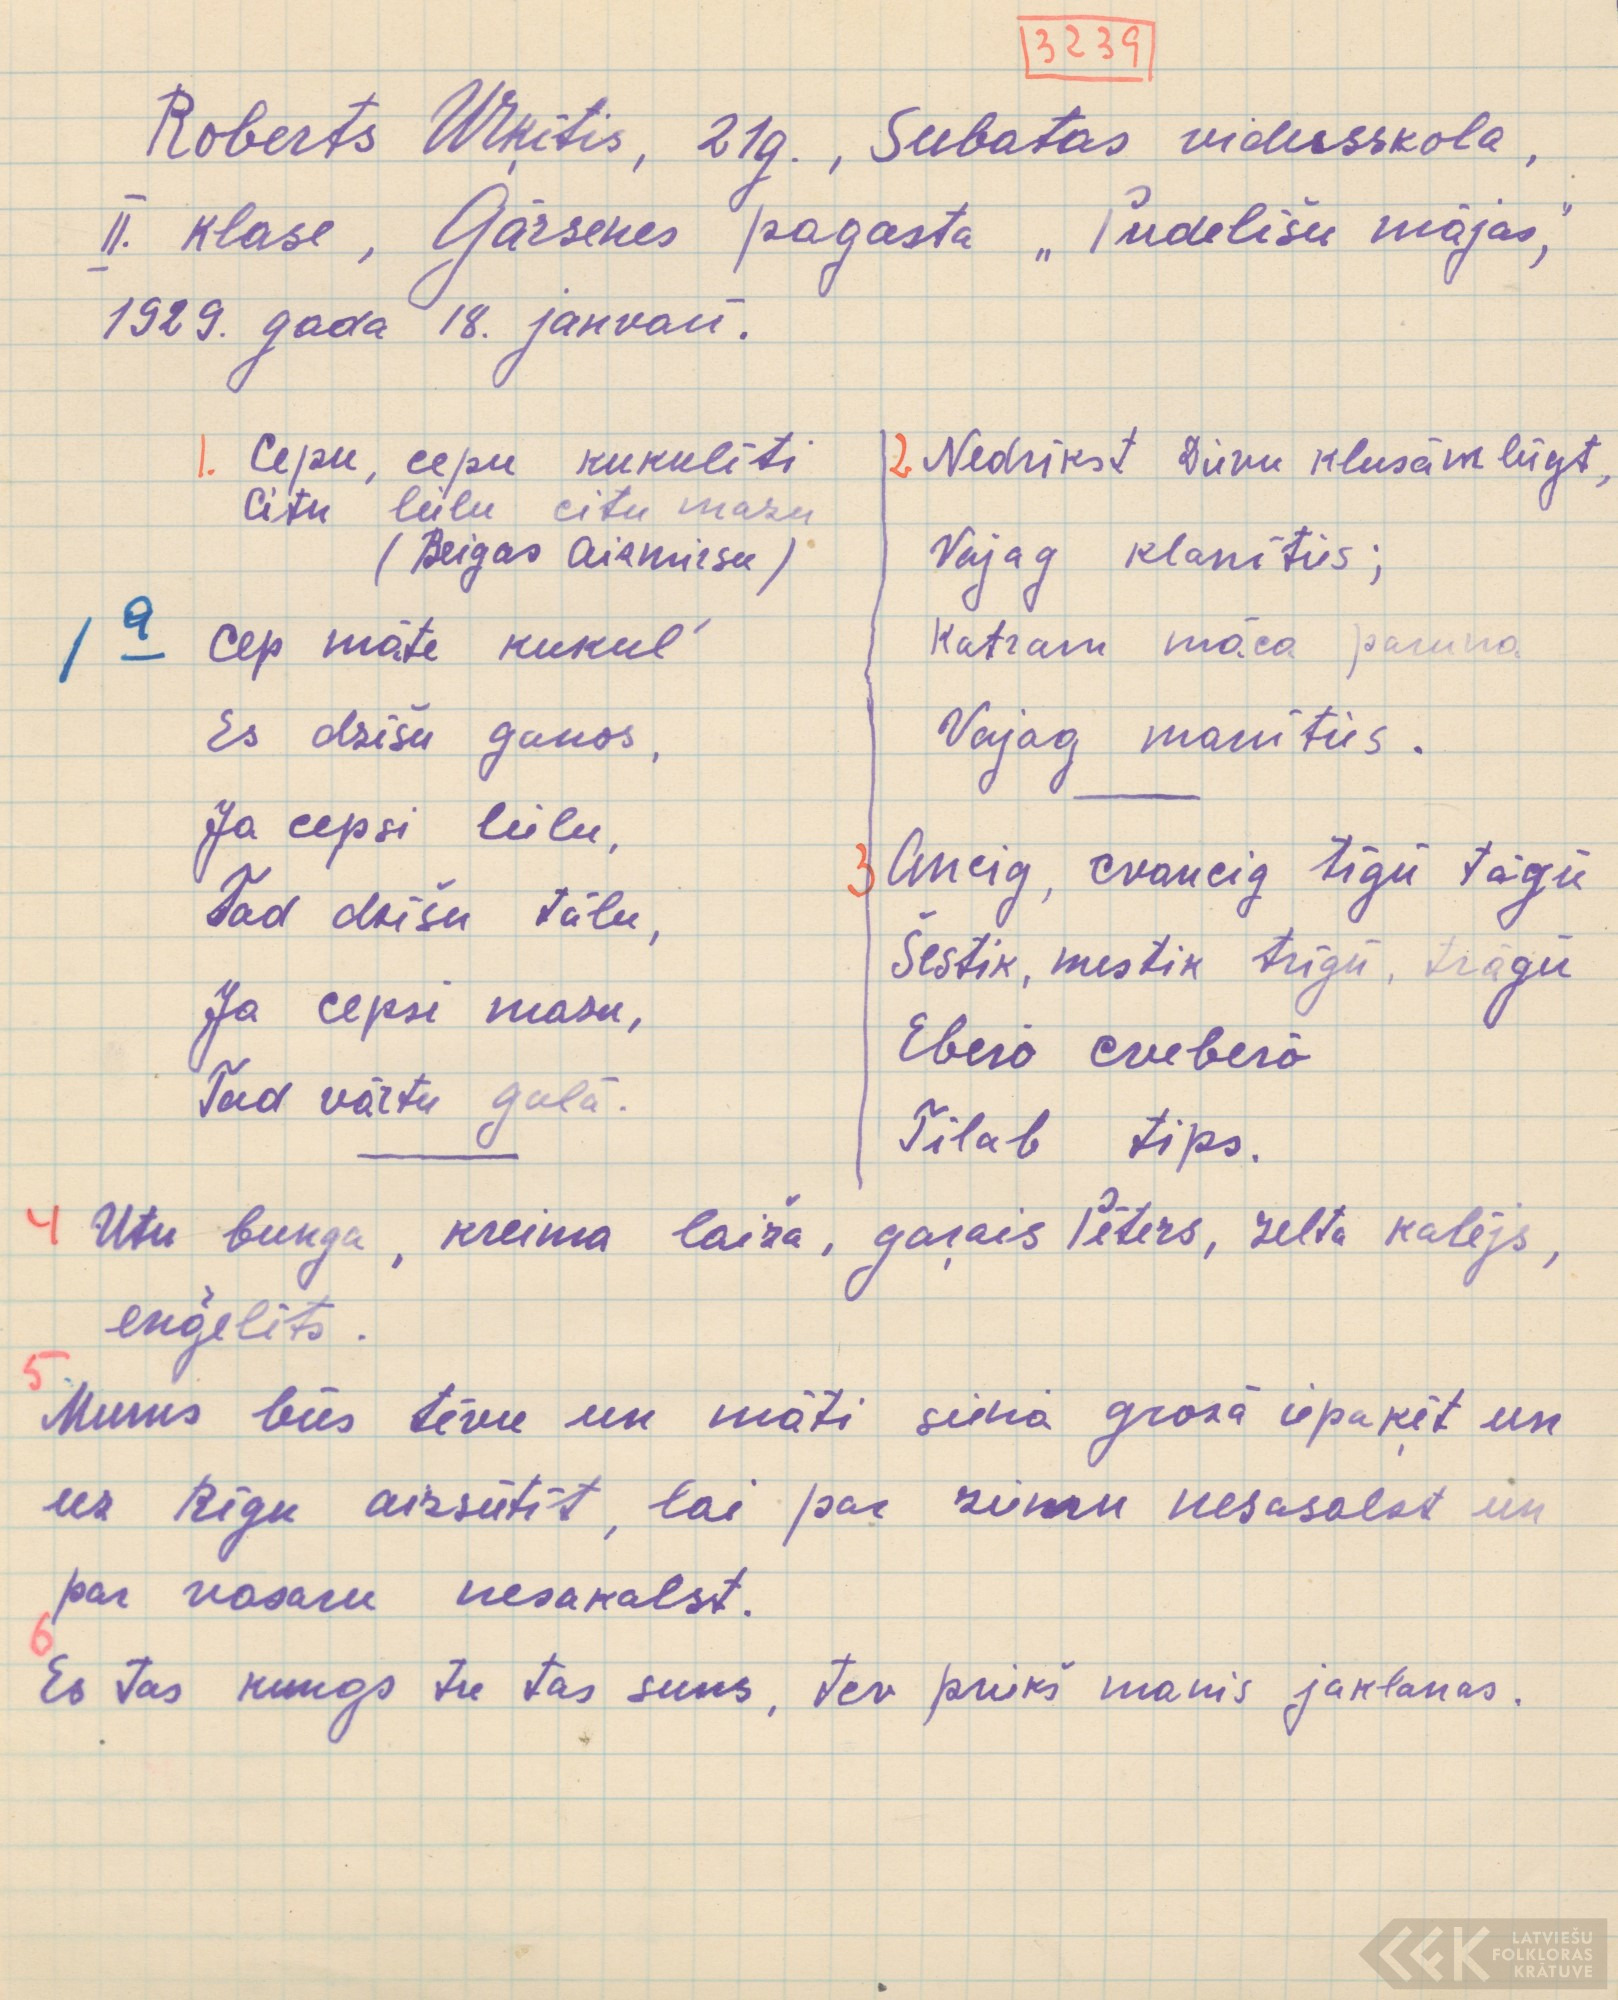 3239
Roberts Urķītis, 21g., Subatas vidusskola,
II. klase, Gārsenes pagasta „Pudelīšu mājas,"
1929. gada 18. janvarī.
1. Cepu, cepu kukulīti
Citu lielu citu mazu
(Beigas Aizmirsu)
1a Cep māte kukul'
Es dzīšu ganos,
Ja cepsi lielu,
Tad dzīšu tālu,
Ja cepsi mazu,
Tad vārtu galā.
2 Nedrīkst Dievu klusām lūgt,
Vajag klanīties;
Katram māca
Vajag manīties.
3 Ancig, cvancig tīgū tāgū
Šestik, mestik trīgū, trāgū
Eberō cveberō
Tilab tips.
4 Utu bunga, kreima laiža, gaŗais Pēters, zelta kalējs,
enģelīts.
5 Mums būs tēvu un māti siena grozā iepaķēt un
uz Rīgu aizsūtīt, lai par ziemu nesasalst un
par vasaru nesakalst.
6
Es tas kungs tu tas suns, tev priekš manis jaklanas.
LATVIEŠU
FOLKLORAS
KRĀTUVE